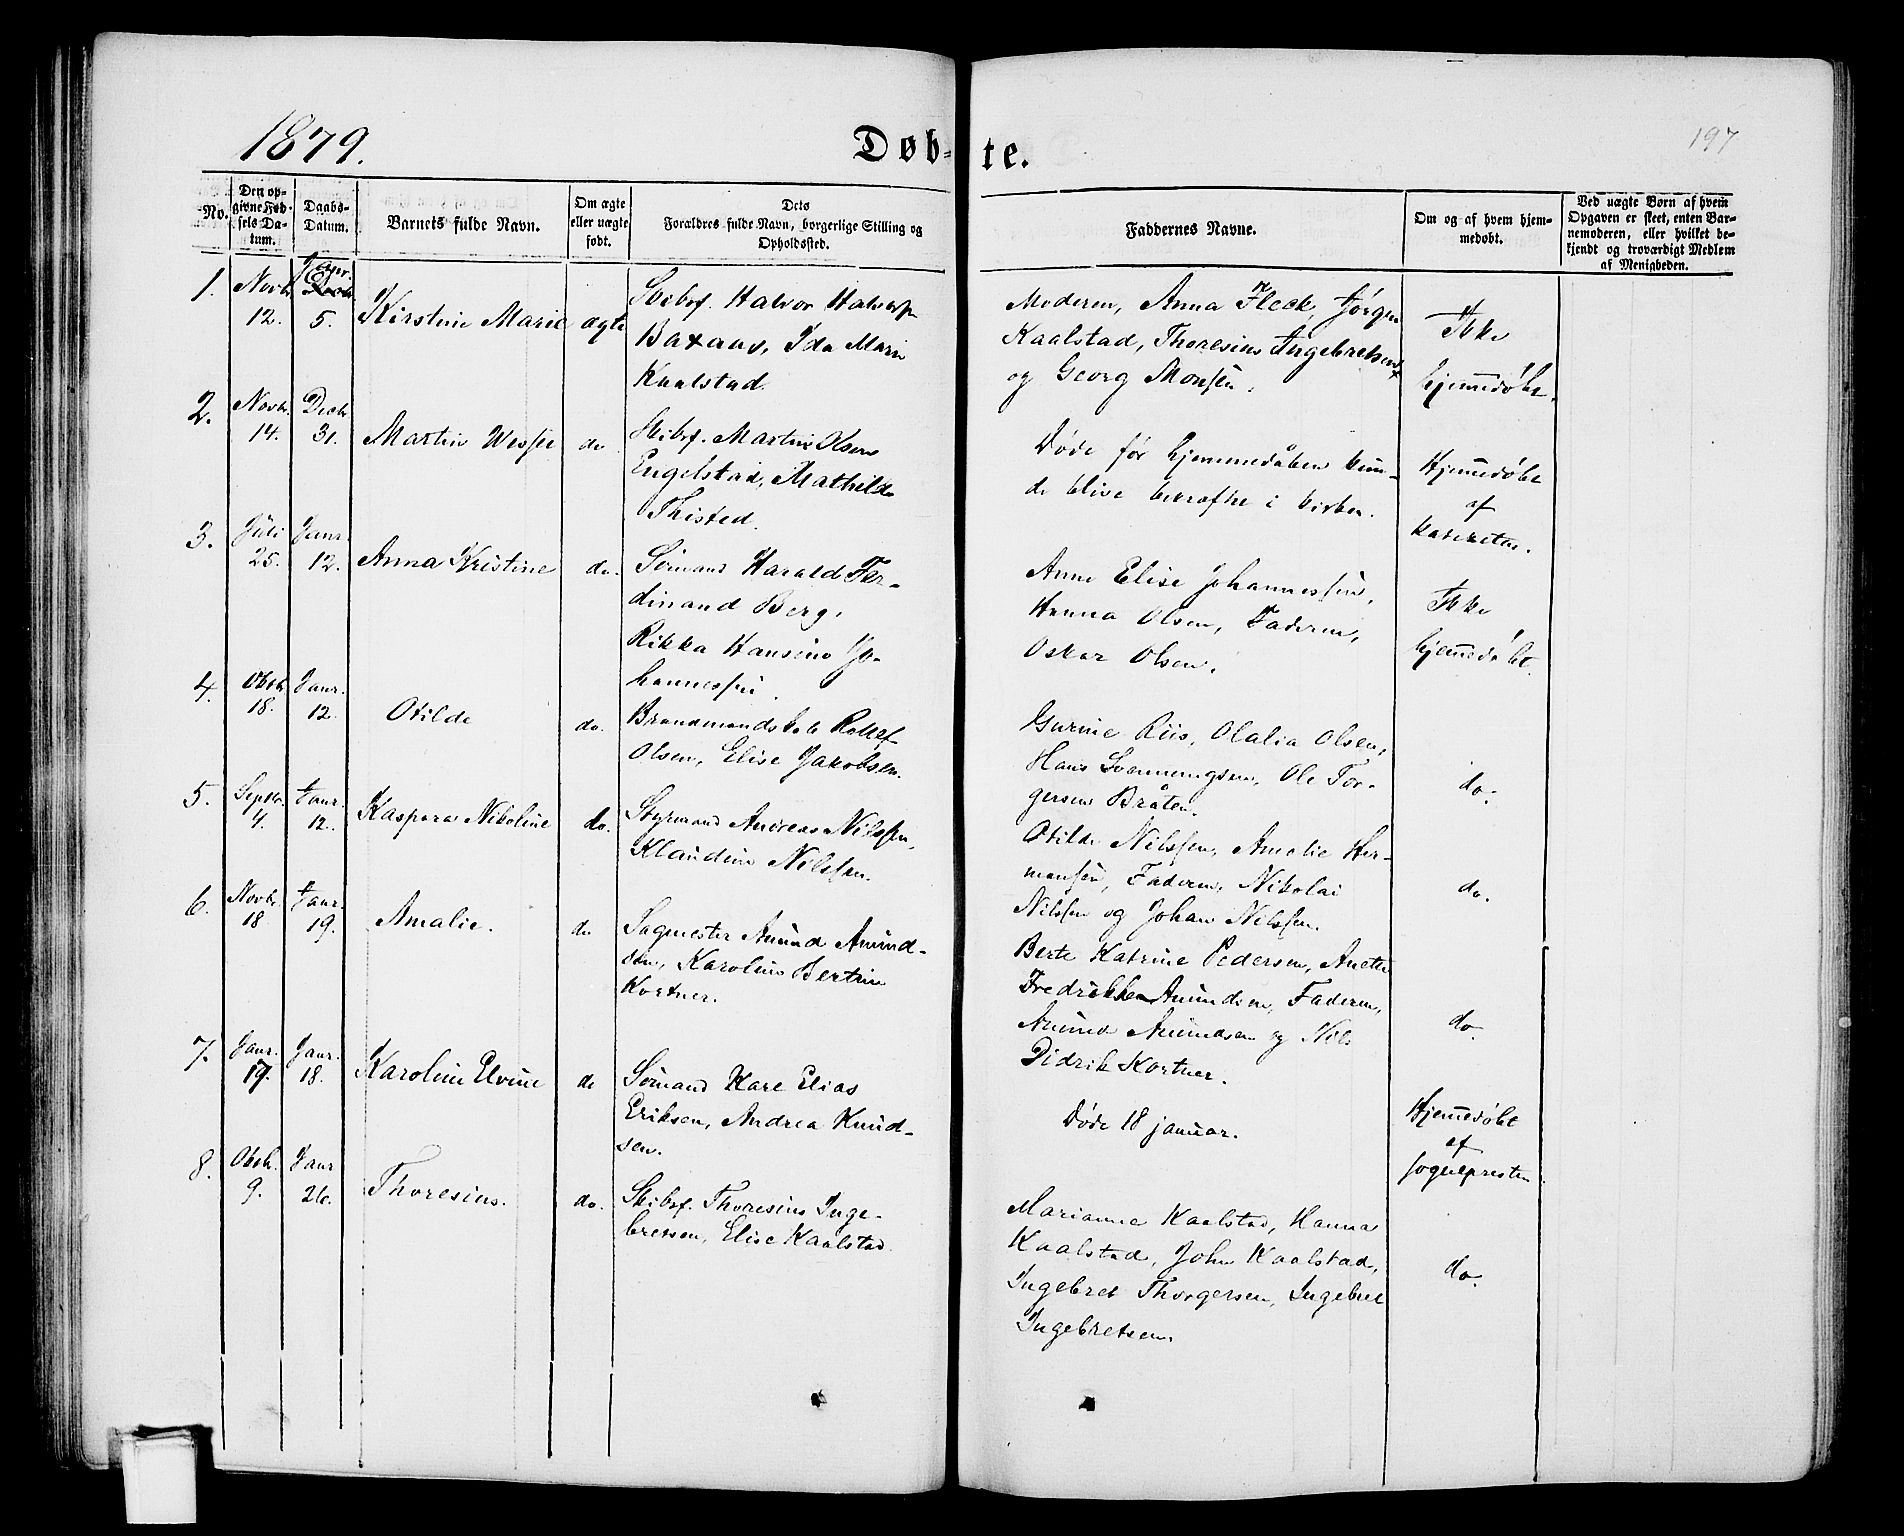 1879.
Døb-
te.
197
No.
Den op-
givne Fød-
sels Da-
tum.
Daabs-
Datum.
Barnets fulde Navn.
Om ægte
eller uægte
født.
Dets
Forældres fulde Navn, borgerlige Stilling og
Opholdssted.
Faddernes Navne.
Om og af hvem hjem-
medøbt.
Ved uægte Børn af hvem
Opgaven er skeet, enten Bar-
nemoderen, eller hvilket be-
kjendt og troværdigt Medlem
af Menigheden.
1.
Novbr
12.
Janr.
5.
Kirstine Marie
ægte
Skibsf. Halvor
Ida Marie
Kaalstad.
Moderen, Anna Fleck, Jørgen
Kaalstad, Thoresius Ingebretsen
og Georg Monsen.
Ikke
hjemmedøbt.
2.
Novbr.
14.
Decbr
31.
Martin Wessel
do
Skibsf. Martin Olsen
Engelstad, Mathilde
Thisted.
Døde før hjemmedåben kun-
de blive bekræftet i kirken.
Hjemmedøbt
af
3.
Juli
25.
Janr
12.
Anna Kristine
do.
Sømand Harald Fer-
dinand Berg,
Rikka Hansine Jo-
hannessen.
Anne Elise Johannessen,
Hanna Olsen, Faderen,
Oskar Olsen.
Ikke
hjemmedøbt.
4.
Oktbr
18.
Janr.
12.
Otilde
do.
Olsen, Elise Jakobsen.
Gurine Riis, Olalia Olsen,
Hans Ole Tor-
gersen Bråten.
do.
5.
Septbr.
4.
Janr.
12.
Kaspara Nikoline
do.
Styrmand Andreas Nilssen,
Klaudine Nilssen.
Otilde Nilssen, Amalie Her-
mansen, Faderen, Nikolai
Nilssen og Johan Nilssen.
do.
6.
Novbr.
18
Janr.
19.
Amalie.
do
Sagmester Amund Amund-
sen, Karoline Bertine
Kortner.
Berte Katrine Pedersen, Anette
Fredrikke Amundsen, Faderen,
Amund Amundsen og Nils
Didrik Kortner.
do.
7.
Janr.
17.
Janr.
18.
Karoline Elvine
do
Sømand Karl Elias
Eriksen, Andrea Knud-
sen.
Døde 18 januar.
Hjemmedøbt
af
sognepresten.
8.
Oktbr.
9.
Janr
26.
Thoresius.
do.
Skibsf. Thoresius Inge-
bretsen, Elise Kaalstad.
Marianne Kaalstad, Hanna
Kaalstad, John Kaalstad,
Ingebret Thorgersen, Ingebret
Ingebretsen.
do.